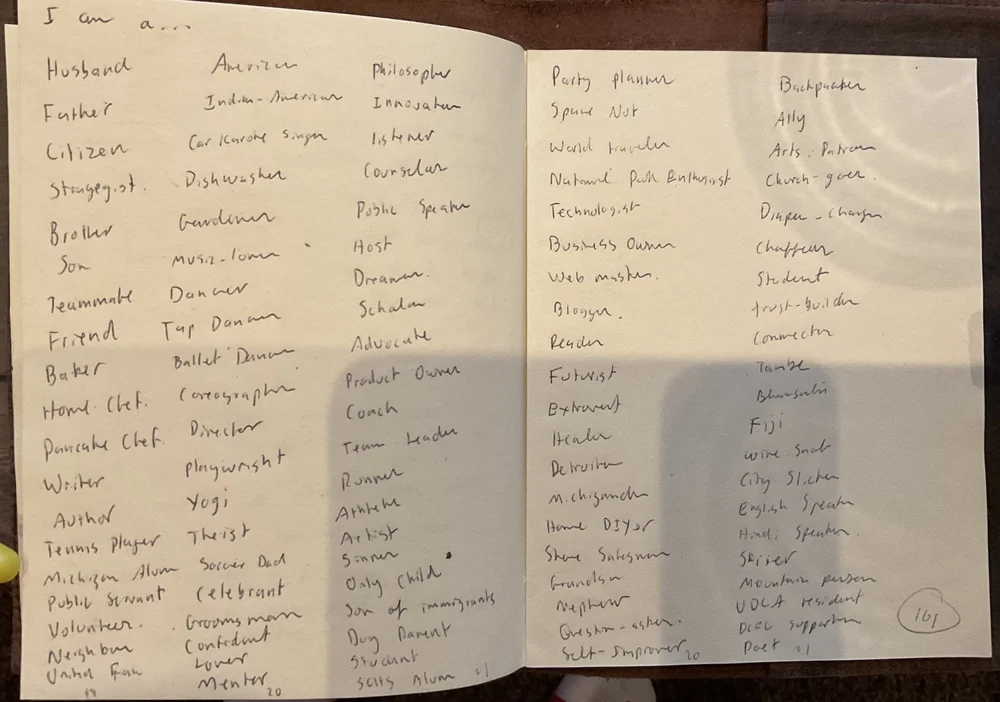 I am a...
Husband
Father
Citizen
Stragegist.
Brother
Son
Teammate
Friend
Baker
Home Chef.
Pancake Chef.
Writer
Author
Tennis Player
Michigan Alum
Public Servant
Volunteer.
Neighbor
United Fan
19
American
Indian-American
Car Karoke Singer
Dishwasher
Gardener
Music-lover
Dancer
Tap Dancer
Ballet Dancer
Coreographer
Director
Playwright
Yogi
Theist
Soccer Dad
Celebrant
Groomsman
Confidant
Lover
Mentor
20
Philosopher
Innovator
listener
Counselor
Public Speaker
Host
Dreamer.
Scholar
Advocate
Product Owner
Coach
Team Leader
Runner
Athlete
Artist
Sinner
Only Child
Son of immigrants
Dog Parent
Student
Alum 21
Party planner
Space Nut
World traveler
National Park Enthusiast
Technologist
Business Owner
Web master.
Blogger.
Reader
Futurist
Extravert
Healer
Detroiter
Michigander
Home DIYer
Shoe Salesman
Grandson
Nephew
Question-asker.
Self-Improver 20
Backpacker
Ally
Arts Patron
Church-goer.
Diaper-Changer
Chaffeur
Student
trust-builder
Connector
Tambe
Fiji
wine snob
City Slicker
English Speaker
Hindi Speaker.
Skiier
Mountain person
resident
supporter
Poet 21
161